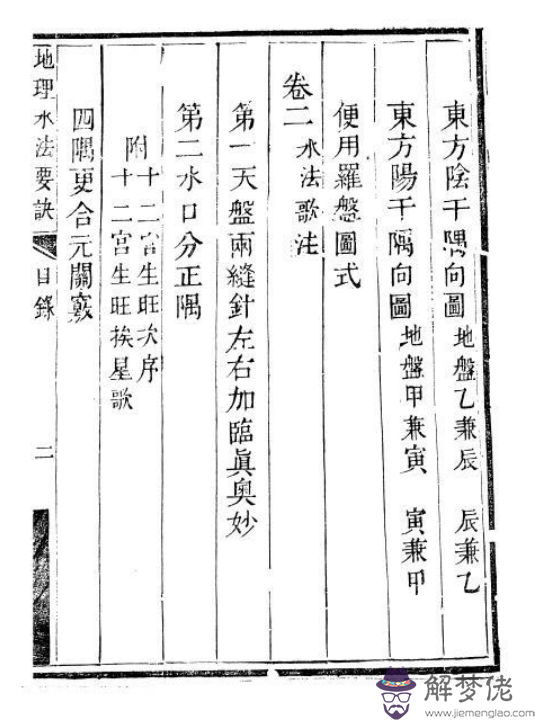 東方陰干隅向圖 地盤乙兼辰 辰兼乙
東方陽干隅向圖 地盤甲兼寅 寅兼甲
便用羅盤圖式
卷二 水法歌注
第一天盤兩縫針左右加臨眞奧妙
第二水口分正隅
附 十二宮生旺次序
十二宮生旺挨星歌
四隅更合元關竅
地理水法要訣 目錄 二
解梦佬
www.jiemenglao.com